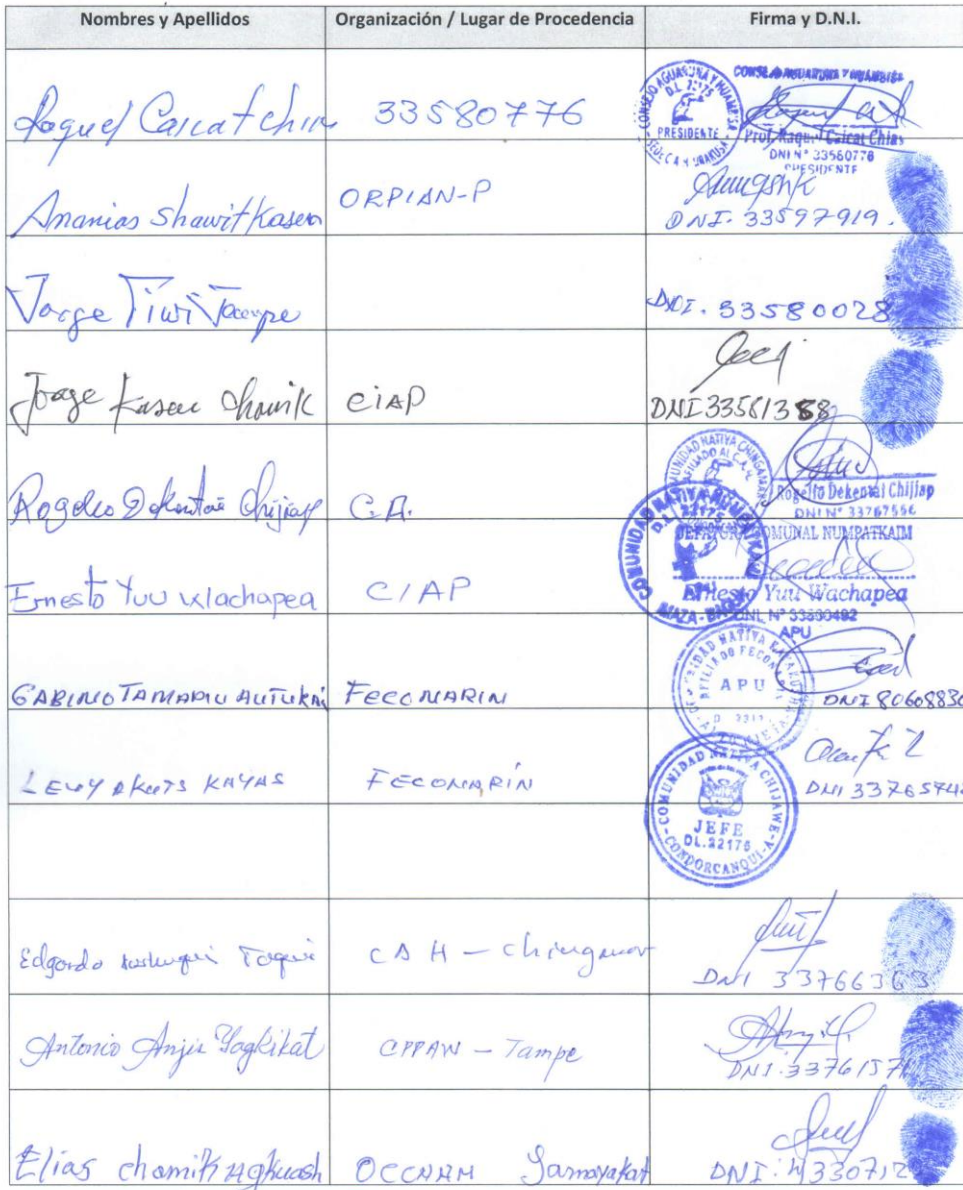 Nombres y Apellidos Organización / Lugar de Procedencia Firma y D.N.I.
Raquel Caicat Chias 33580776
CONSEJO AGUARUNA Y HUAMBISA
D.L. 22175
PRESIDENTE
CONSEJO AGUARUNA Y HUAMBISA
Prof. Raquel Caicat Chias
DNI N° 33580776
PRESIDENTE
Ananias Shawit Kasen ORPIAN-P
DNI. 33597919.
Jorge Tiwi
DNI. 33580028
Jorge Kasen Chamik CIAP
DNI 33561388
Rogelio Dekentai Chijiap C.A.
COMUNIDAD NATIVA
AFILIADO AL C.A.H.
Rogelio Dekentai Chijiap
DNI N° 33767556
Ernesto Yuu Wachapea CIAP
COMUNIDAD NATIVA NUMPATKAIM
22175
JEFATURA COMUNAL NUMPATKAIM
Ernesto Yuu Wachapea
DNI. N° 33580492
APU
GABINO TAMARIU AUTUKAI FECONARIN
AFILIADO FECONARIN
APU
DNI 80608830
LEUY AKUTS KAYAS FECONARÍN
DNI 3376574
COMUNIDAD NATIVA CHIJAWE
JEFE
DL.22175
CONDORCANQUI-A
Edgardo CAH - Chinganar
DNI 33766363
Antonio Anjis Yagkikat CPPAW - Tampe
DNI. 3376157
Elias chamik Agkuash OCCAAM Yamayakat
DNI: